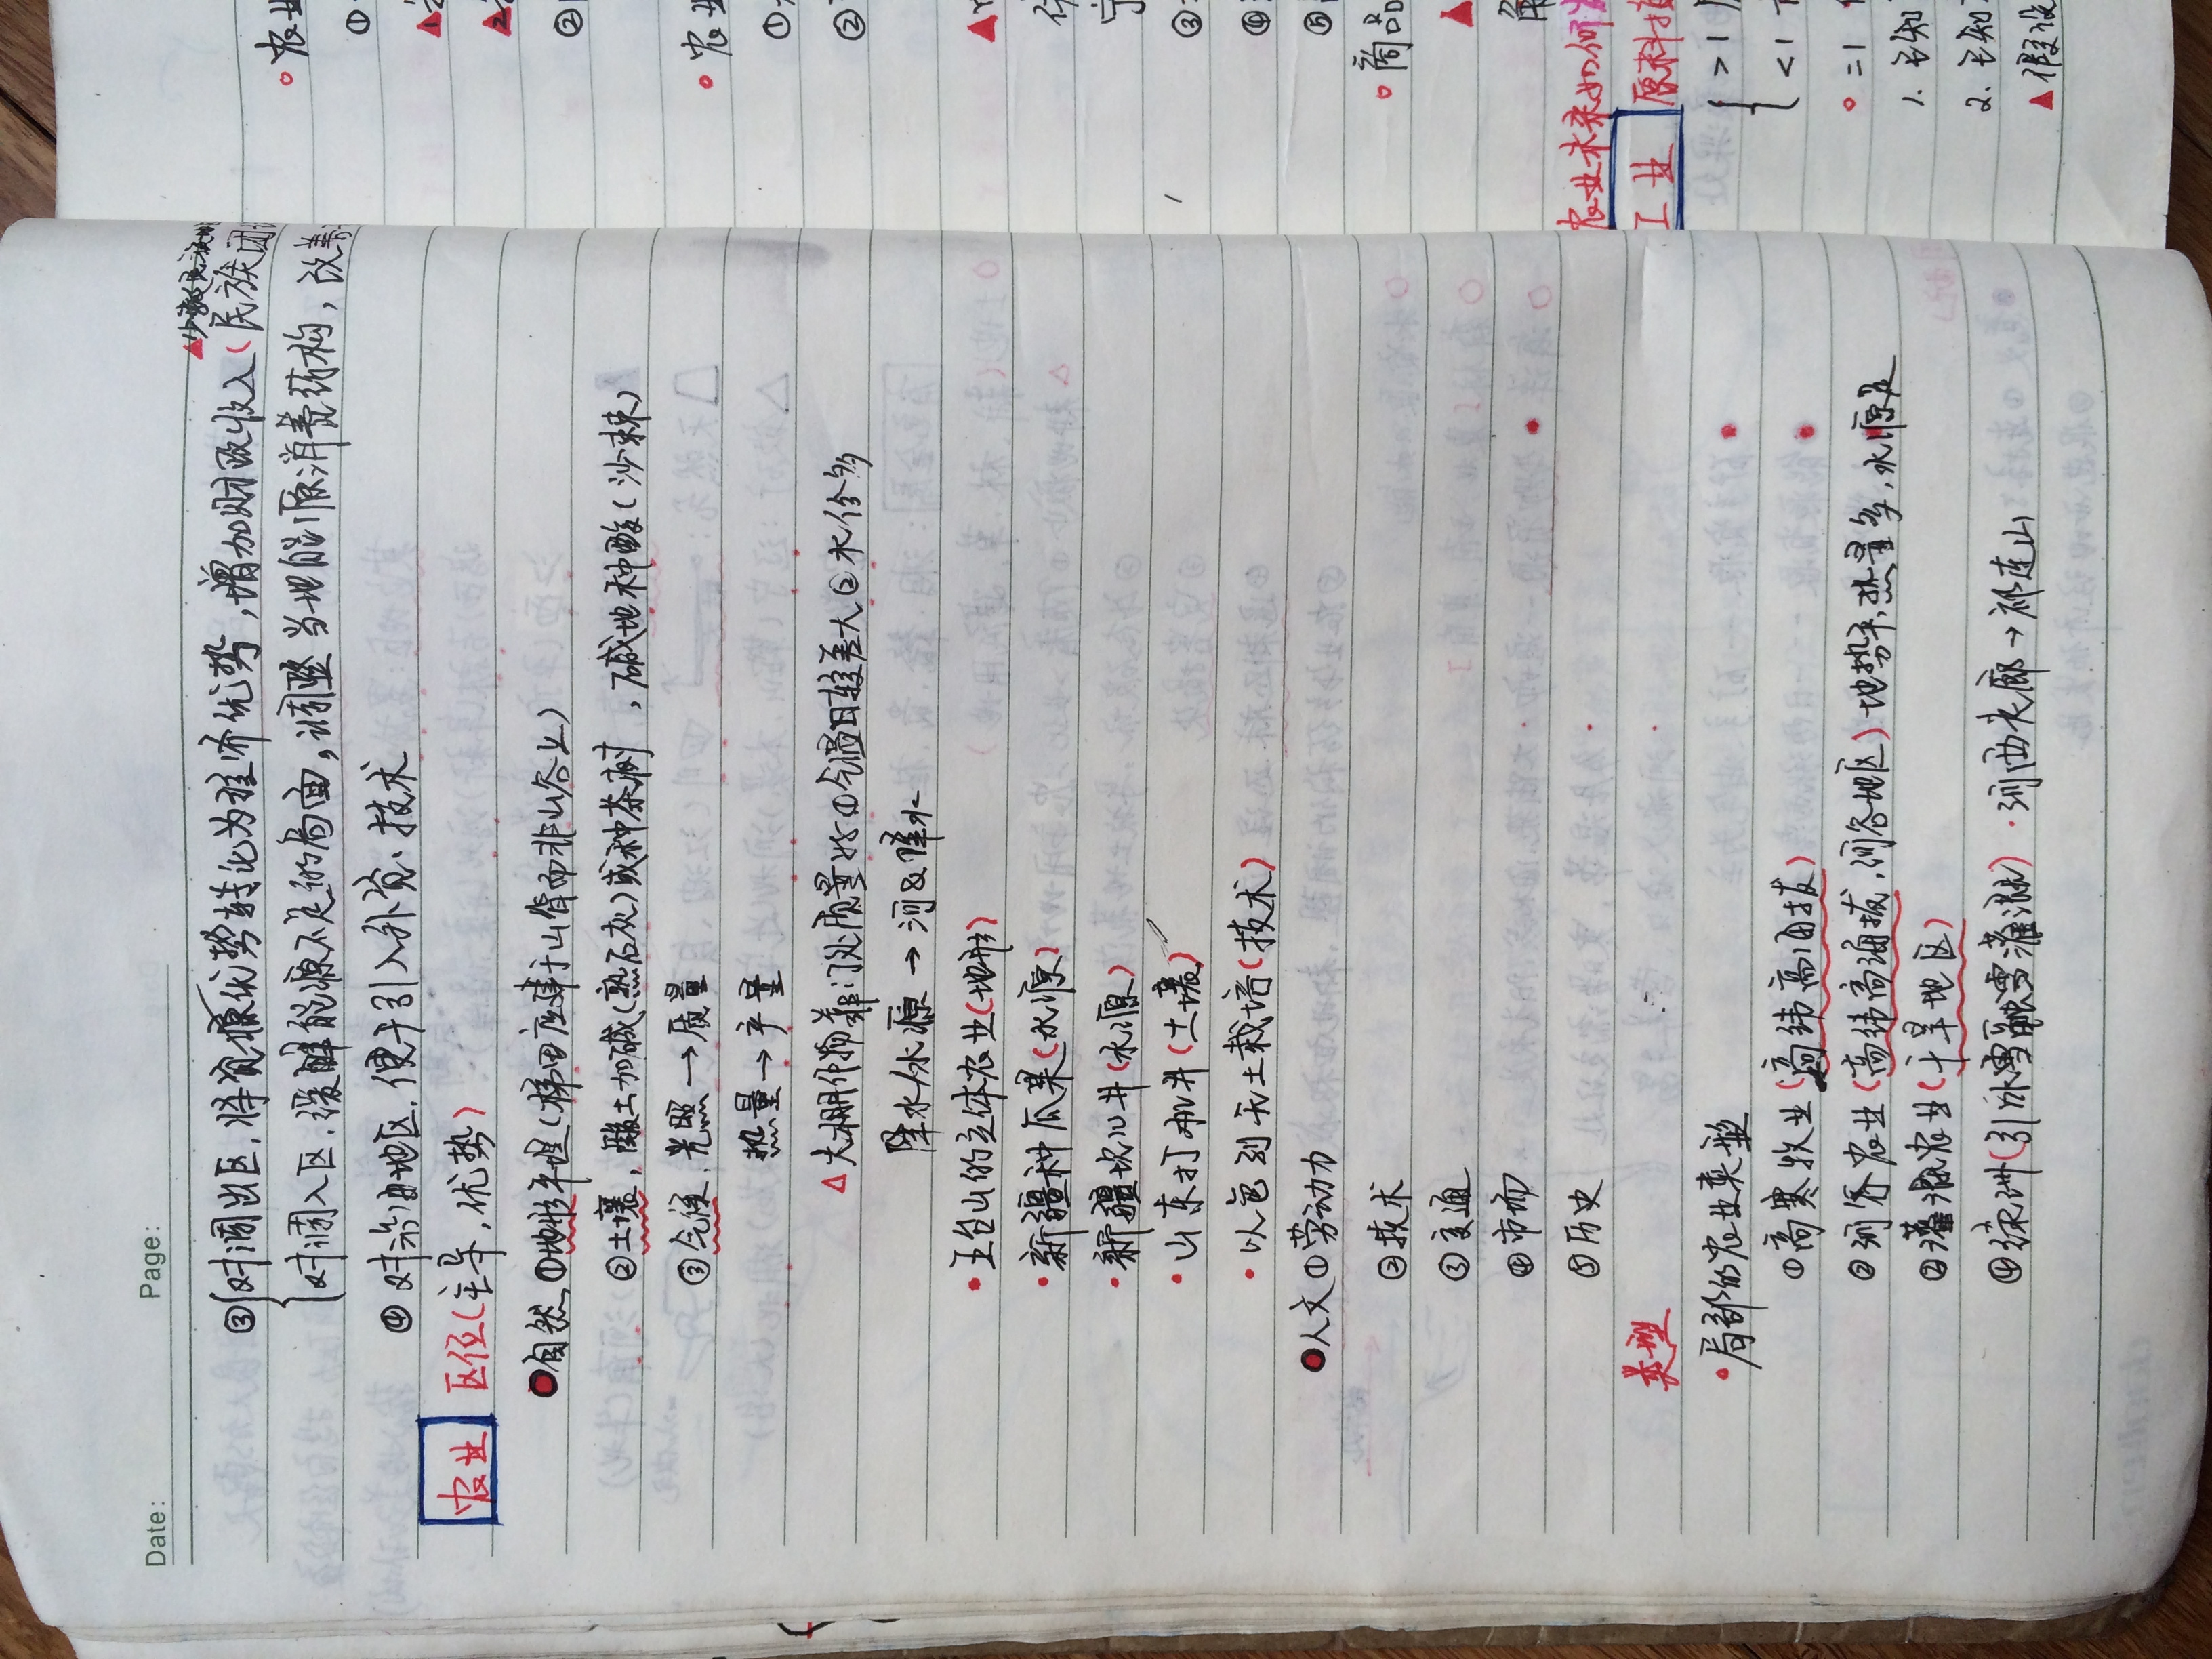 Date: Page:
▲少数民族地
③{对调出区，将资源优势转化为经济优势，增加财政收入(民族团
对调入区，缓解能源不足的局面，调整当地能源消费结构，改善
④ 对沿途地区，便于引入外资、技术
农业 区位(主导，优势)
●自然 ①地形平坦(梯田应建于山脊而非山谷上)
②土壤，酸土加碱(熟石灰)或种茶树，碱地种酸(沙棘)
③气候，光照→质量
热量→产量
△大棚作物靠门处质量好①气温日较差大②水份多
降水/水源→河&降水
·五台山的立体农业(地形)
·新疆种瓜果(水源)
·新疆坎儿井(水源)
·山东打机井(土壤)
·以色列无土栽培(技术)
●人文①劳动力
②技术
③交通
④市场
⑤历史
类型
·局部的农业类型
①高寒牧业(高纬高海拔)
②河谷农业(高纬高海拔，河谷地区)地势平，热量多，水源足
③灌溉农业(干旱地区)
④绿洲(引冰雪融雪灌溉)·河西走廊→祁连山
○农业
①
▲1
▲2
②
○农业
①
②
▲
③
④
⑤
○商品
▲
农业未来如何发
工业 原料指
{>1
<1
○=1
1. 已知
2. 已知
▲假设